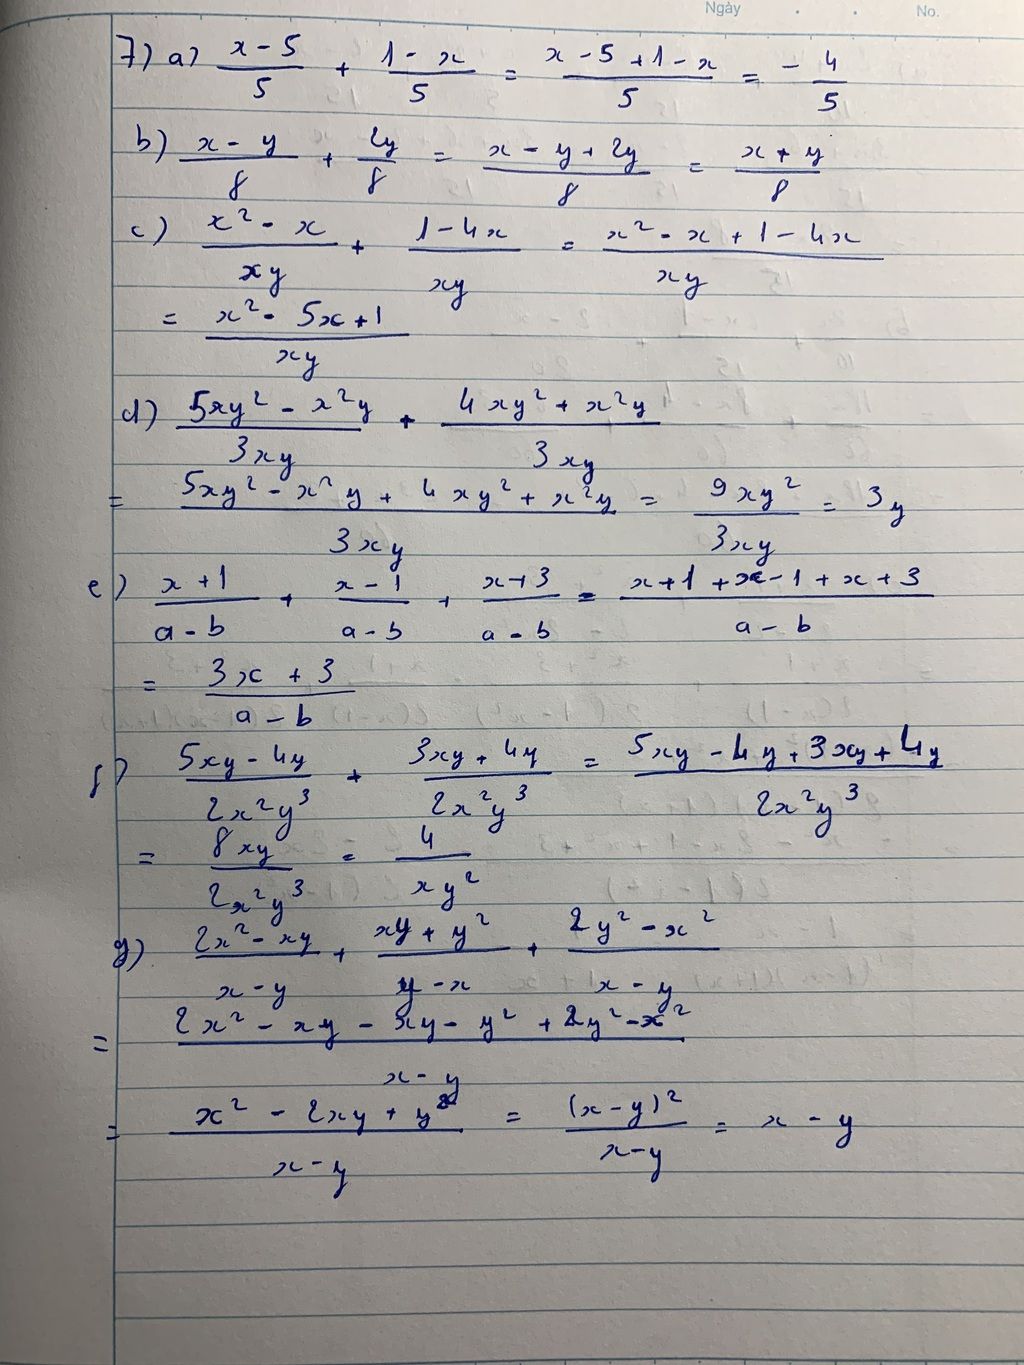 Ngày . . No.
7) a) (x - 5)/5 + (1 - x)/5 = (x - 5 + 1 - x)/5 = - 4/5
b) (x - y)/8 + 2y/8 = (x - y + 2y)/8 = (x + y)/8
c) (x² - x)/xy + (1 - 4x)/xy = (x² - x + 1 - 4x)/xy
= (x² - 5x + 1)/xy
d) (5xy² - x²y)/3xy + (4xy² + x²y)/3xy
= (5xy² - x²y + 4xy² + x²y)/3xy = 9xy²/3xy = 3y
e) (x + 1)/(a - b) + (x - 1)/(a - b) + (x + 3)/(a - b) = (x + 1 + x - 1 + x + 3)/(a - b)
= (3x + 3)/(a - b)
f) (5xy - 4y)/2x²y³ + (3xy + 4y)/2x²y³ = (5xy - 4y + 3xy + 4y)/2x²y³
= 8xy/2x²y³ = 4/xy²
g) (2x² - xy)/(x - y) + (xy + y²)/(y - x) + (2y² - x²)/(x - y)
= (2x² - xy - xy - y² + 2y² - x²)/(x - y)
= (x² - 2xy + y²)/(x - y) = (x - y)²/(x - y) = x - y